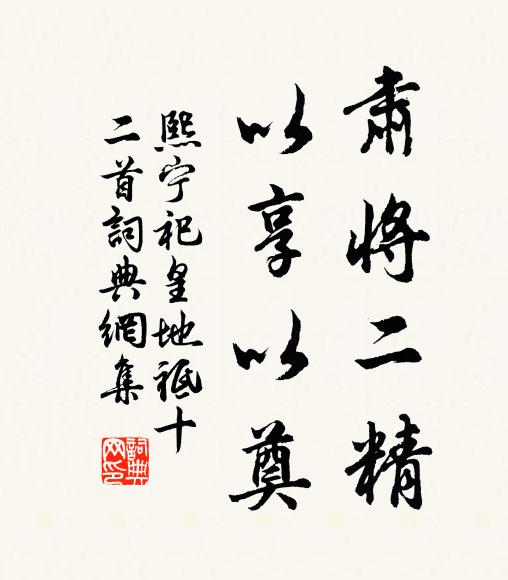 肃將二精
以享以奠
熙宁祀皇地祗十
二首詞典網集
詞典
网印